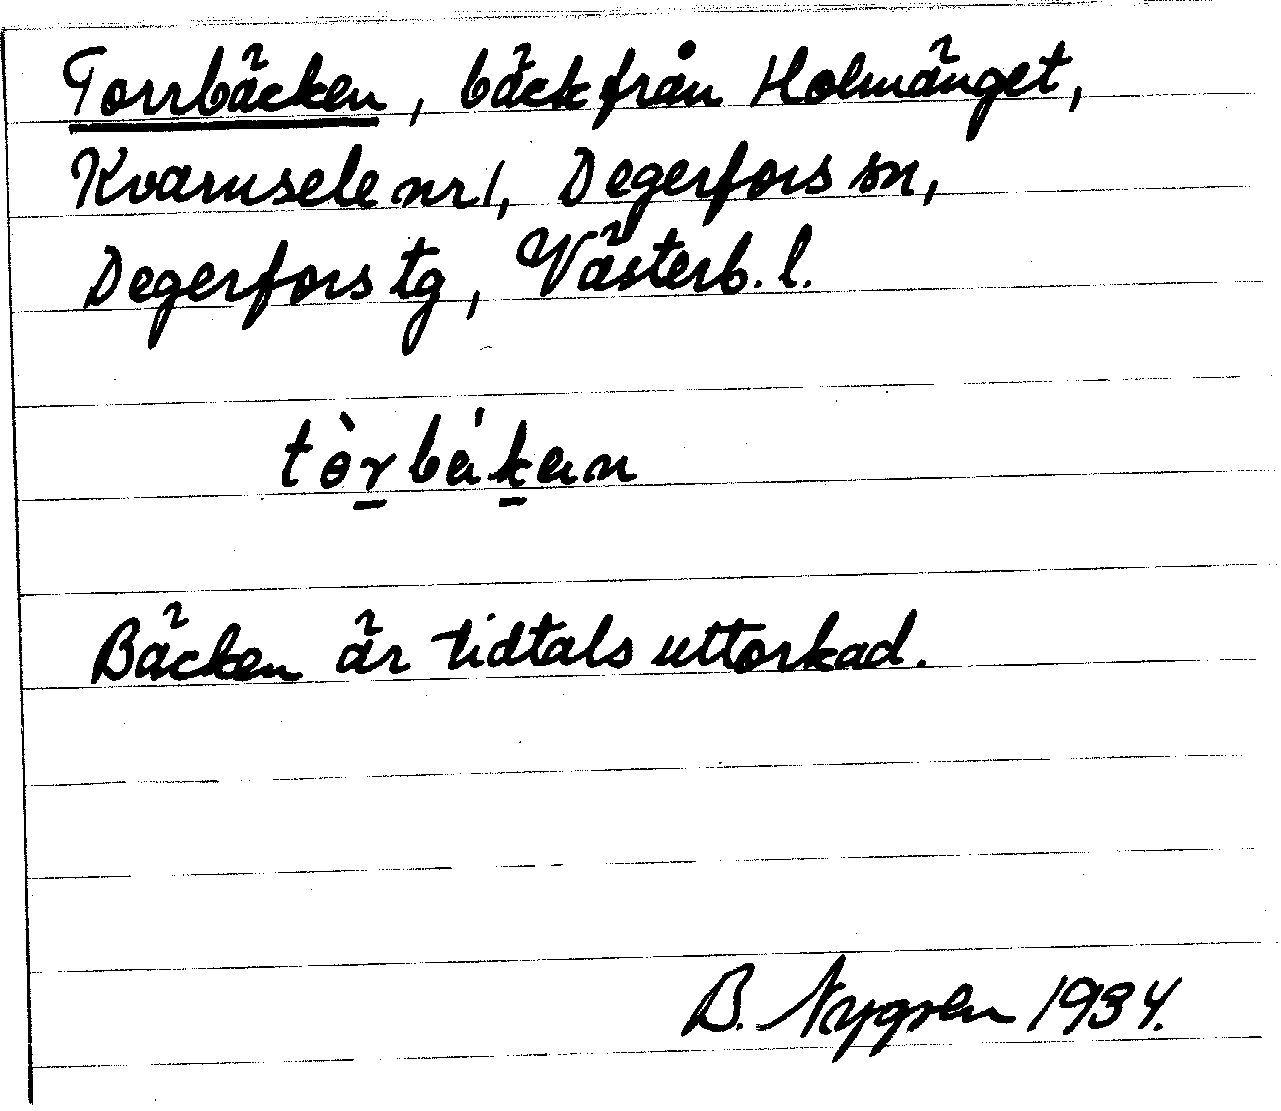 Torrbäcken, bäck från Holmänget,
Kvarnsele nr 1, Degerfors sn,
Degerfors tg, Västerb. l.
tòrbäkän
Bäcken är tidtals uttorkad.
B. Nygren 1934.